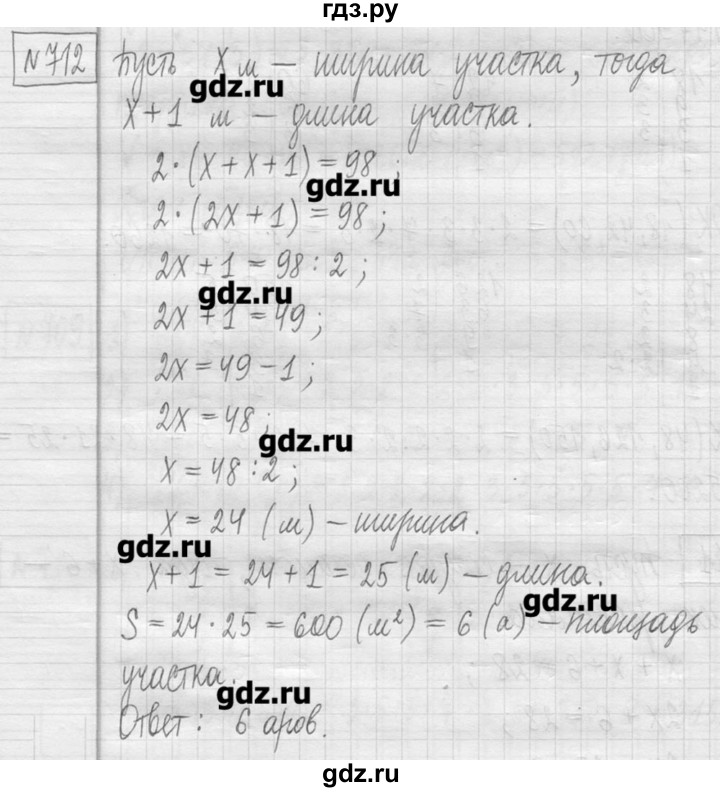 гдз.ру
№712 Пусть x м – ширина участка, тогда
gdz.ru
x+1 м – длина участка.
2·(x+x+1)=98;
gdz.ru
2·(2x+1)=98;
2x+1=98:2;
gdz.ru
2x+1=49;
2x=49-1;
2x=48;
gdz.ru
x=48:2;
x=24 (м) – ширина.
gdz.ru
x+1=24+1=25 (м) – длина.
gdz.ru
S=24·25=600 (м²)=6 (а) – площадь
участка.
gdz.ru
Ответ: 6 аров.
gdz.ru